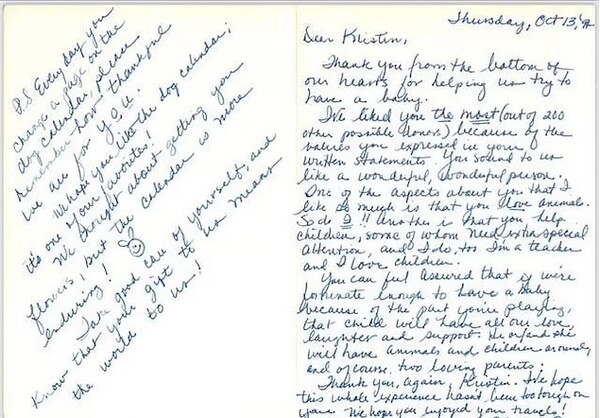 P.S Everyday you
change a page on the
dog calendar, please
remember how thankful
we are for YOU.
Hope you like the dog calendar;
it's one of our favorites!
We thought about getting you
flowers, but the calendar is more
enduring!
Take good care of yourself, and
Know that your gift to us means
the world to us!
Thursday, Oct 13,
Dear Kristin,
Thank you from the bottom of
our hearts for helping us try to
have a baby.
I've liked you the most (out of 200
other possible donors) because of the
values you expressed in your
written statements. You sound to us
like a wonderful, wonderful person.
One of the aspects about you that I
like so much is that you love animals.
So do I!! Another is that you help
children, some of whom need extra special
attention, and I do, too. I'm a teacher
and I love children.
You can feel assured that if we're
fortunate enough to have a baby
because of the part you're playing,
that child will have all our love,
laughter and support. He or/and she
will have animals and children around,
and of course, two loving parents.
Thank you, again, Kristin. We hope
this whole experience hasn't been too tough on
you. We hope you enjoyed your travels!